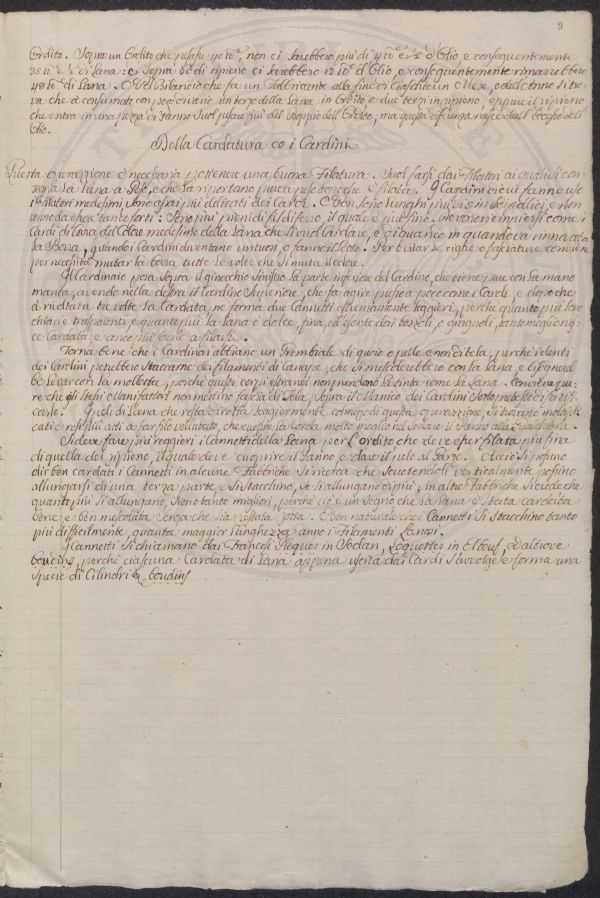 9
Ordito. Sopra un Ordito che pesasse 40 lb, non ci sarebbero più di 4 d'Olio, e conseguentemente
35 di Lana: e Sopra 60 di ripieno ci sarebbero 12 d'Olio, e conseguentemente rimarrebbero
48 di Lana. Dal Bilancio che fa un Fabbricante alla fine di ciascheun Mese, o dell'anno si tro
va che à consumato con poco divario un terzo della Lana in Ordito e due terzi in ripieno, oppure il ripieno
che entra in una pezza di Panno Suol pesare più del doppio dell'Ordito; ma questa differenza nasce dall'eccesso dell'
Olio.
Della Cardatura co i Cardini
Questa operazione è necessaria p ottenere una buona Filatura. Suol farsi dai Filatori ai quali si con-
segna la Lana a Peso, e che la riportano pure a peso d e filata. I Cardini di cui fanno uso
i Filatori medesimi, sono assai più delicati dei Cardi. E ben sono lunghi più di 10 in 12 pollici e non
anno da essere tanto forti: Sono più pieni di fil di ferro, il quale è più fino: vengono riempiersi come i
Cardi di Lana del Colore medesimo della Lana che si vuol Cardare, e di quando in quando va rinnovata
la Borra, quando i Cardini diventano untuosi o fanno il letto. Per evitare le righe o fasciature conviene
per necessità mutar la borra tutte le volte che si muta il colore.
Il Cardinaio posa sopra il ginocchio Sinistro la parte inferiore del Cardino, che tiene pure con la mano
manca, avendo nella destra il Cardino Superiore, che fa agire presso a poco come i Cardi, e dopo che
à rivoltata tre volte la Cardata ne forma due Cannetti estremamente leggieri, perchè quanto più sono
chiari e trasparenti e quanto più la Lana è dolce, fina, ed esente dai bozzoli, o gragnoli, tanto meglio ri-
è cardata e anco più facile a filarsi.
Torna bene che i Cardinai abbiano un Grembiale di quoio o pelle e non di tela, perchè i denti
dei Cardini potrebbero staccarne dei filamenti di canape, che si mescolerebbero con la lana, e bisognereb
be levar con la molletta, poichè questi corpi estranei non prendono la tinta come la Lana. Conviene pu-
re che gli Stessi o Manifattori non mettino fascia di Tela, Sopra il Manico dei Cardini Sotto pretesto di fortifi-
carlo. Quei di Lana che resta diretta leggiermente col mezzo di questa operazione, si trovano moltipli-
cati e resi più atti a far filo vellutato, che cuopre la corda molto meglio nel sodare il Panno alla Gualchiera.
Si deve fare più leggieri i Cannetti della Lana per l'Ordito che deve esser filata più fina
di quella del ripieno, il quale deve cuoprire il Panno, e dare il pelo al Garzo. Acciò si possino
dir ben cardati i Cannetti in alcune Fabbriche si ricerca che scuotendoli verticalmente possino
allungarsi di una terza parte e Si Stacchino, se si allungano di più; in altre Fabbriche si crede che
quanto più Si allungano, sieno tanto migliori, perchè ciò è un Segno che la Lana è stata cardata
bene e ben mescolata senza che sia restata rotta. È ben naturale che i Cannetti Si Stacchino tanto
più difficilmente, quanta maggior lunghezza anno i Filamenti Lanosi.
I Cannetti Si chiamano dai Francesi Ploques in Sedan, Loquettes in Elbeuf, ed altrove
boudins, perchè ciascuna Cardata di Lana appena uscita dai Cardi s'avvolge e forma una
Specie di Cilindri o boudins